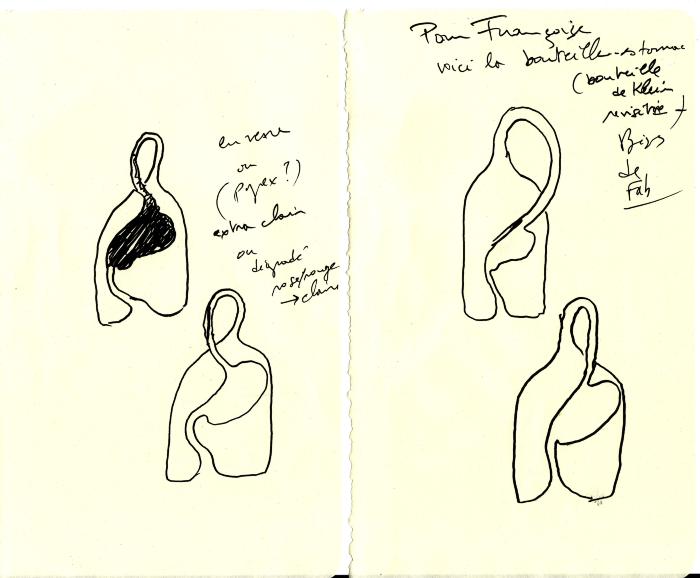 en verre
ou
(pyrex?)
extra clair
ou
dégradé
rose/rouge
→ clair
Pour Françoise
voici la bouteille-estomac
(bouteille
de Klein
revisitée)
Bises
de
Fab